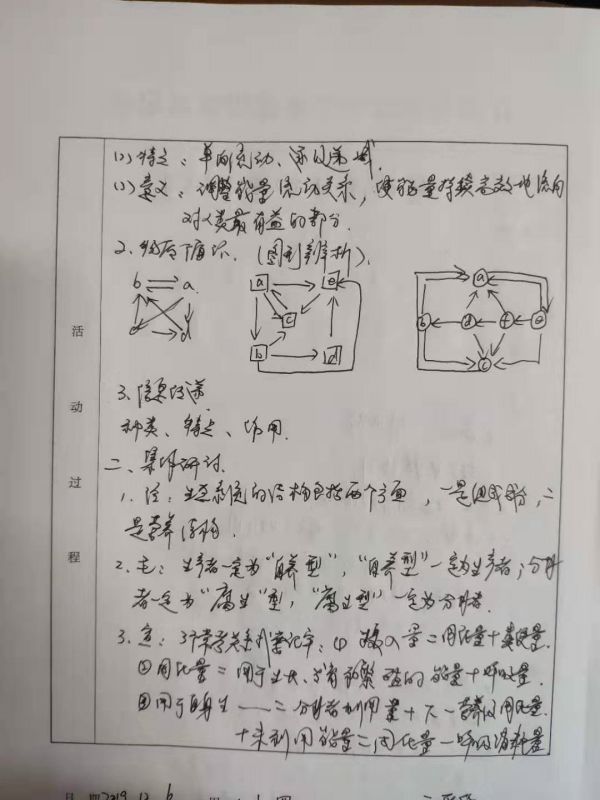 (1) 特点：单向流动、逐级递减.
(2) 意义：调整能量流动关系，使能量持续高效地流向
对人类最有益的部分.
2. 物质循环.（图形辨析）.
b a
c d
a e
c
b d
a
b d f e
c
3. 信息传递
种类、特点、作用.
二、集体研讨.
1. 注：生态系统的结构包括两个方面，一是组成成分，二
是营养结构.
2. 毛：生产者一定为“自养型”，“自养型”一定为生产者；分解
者一定为“腐生”型，“腐生型”一定为分解者.
3. 宫：3个常考关系式要记牢：① 摄入量＝同化量＋粪便量.
②同化量＝用于生长、发育和繁殖的能量＋呼吸量.
③用于自身生——＝分解者利用量＋下一营养级同化量.
＋未利用能量＝同化量－呼吸消耗量
活动过程
2019.12.6